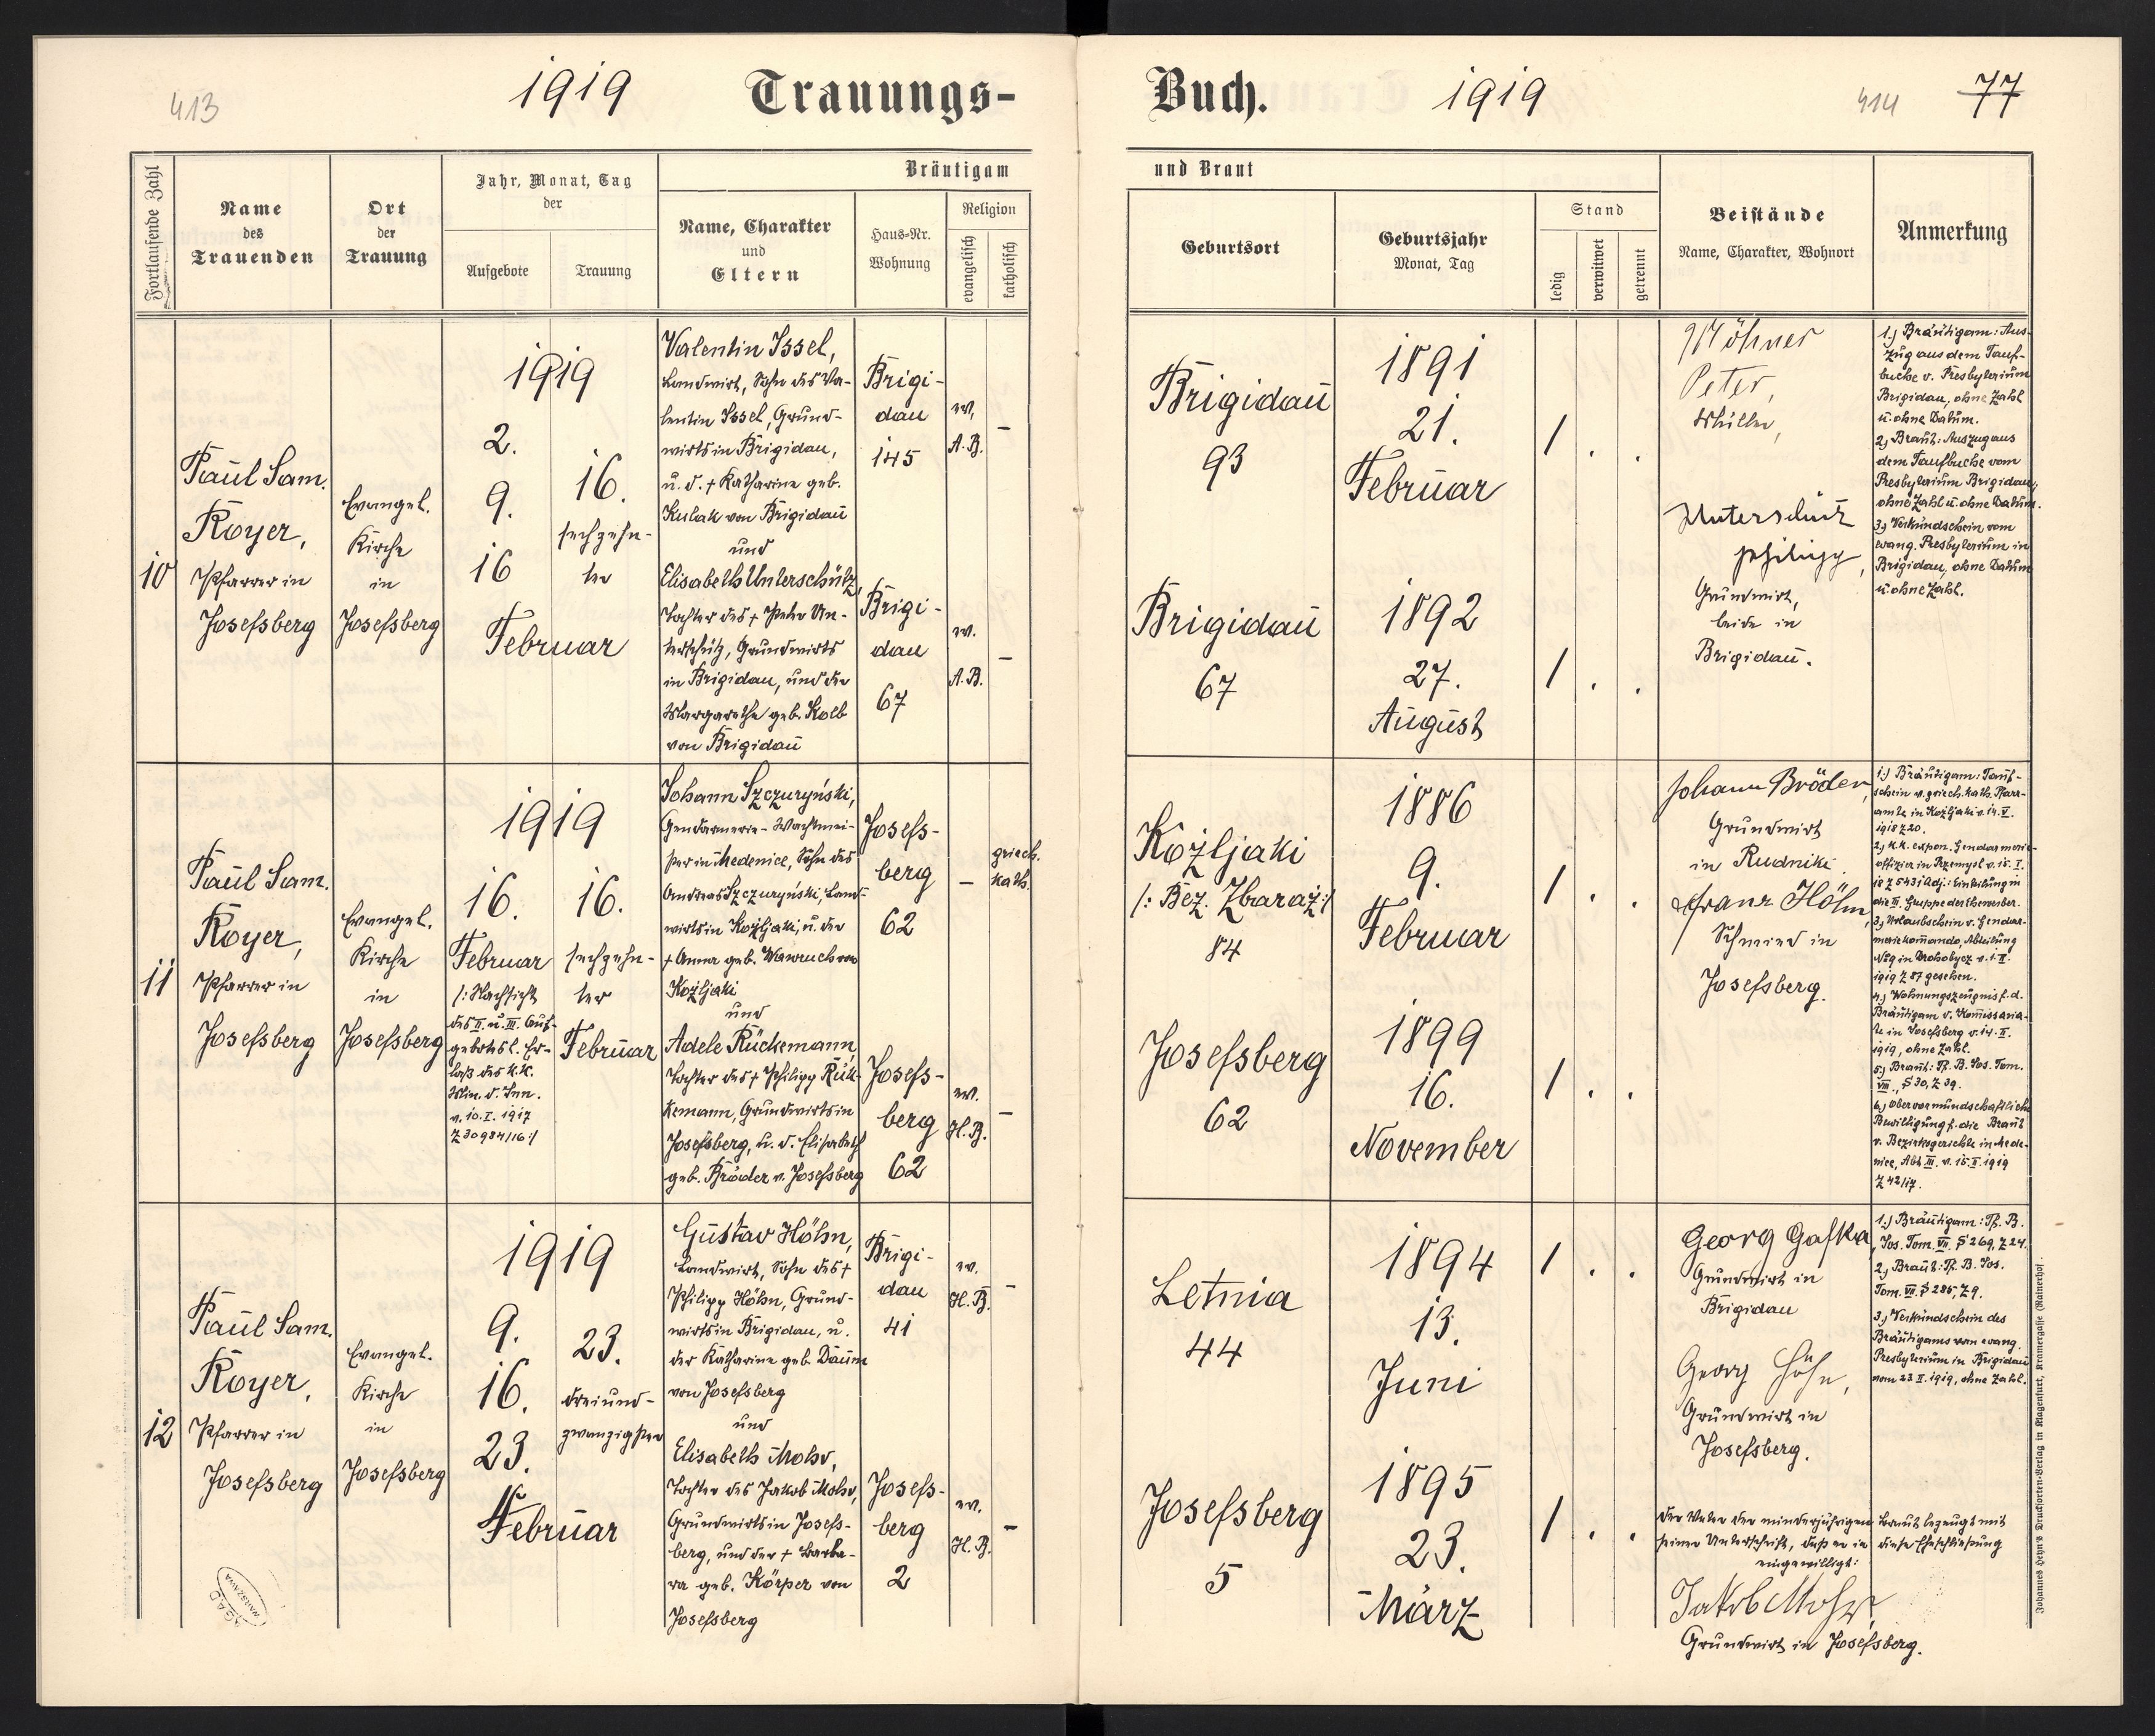 413
1919
Trauungs-
Fortlaufende Zahl
Name
des
Trauenden
Ort
der
Trauung
Jahr, Monat, Tag
der
Aufgebote
Trauung
Bräutigam
Name, Charakter
und
Eltern
Haus-Nr.
Wohnung
Religion
evangelisch
katholisch
10
Paul Sam.
Royer,
Pfarrer in
Josefsberg
Evangel.
Kirche
in
Josefsberg
1919
2.
9.
16
Februar
16.
sechzehn-
ter
Valentin Issel,
Landwirt, Sohn des Va-
lentin Issel, Grund-
wirts in Brigidau,
u. d. + Katharine geb.
Kulak von Brigidau
und
Elisabeth Unterschütz,
Tochter des + Peter Un-
terschütz, Grundwirts
in Brigidau, und der
Margarethe geb. Kolb
von Brigidau
Brigi-
dau
145
Brigi-
dau
67
ev.
A. B.
–
ev.
A. B.
–
11
Paul Sam.
Royer,
Pfarrer in
Josefsberg
Evangel.
Kirche
in
Josefsberg
1919
16.
Februar
/: Nachsicht
des II. u. III. Auf-
gebotes l. Er-
laß des k.k.
Min. d. Inn.
v. 10. I. 1917
Z 30984/16:/
16.
sechzehn-
ter
Februar
Johann Szczuryński,
Gendarmerie-Wachtmei-
ster in Medenice, Sohn des
Andreas Szczuryński, Land-
wirts in Kożljaki, u. der
+ Anna geb. Wawruch von
Kożljaki
und
Adele Rückemann,
Tochter des + Philipp Rük-
kemann, Grundwirts in
Josefsberg, u. d. Elisabeth
geb. Bröder v. Josefsberg
Josefs-
berg
62
Josefs-
berg
62
–
griech.
kath.
ev.
H. B.
–
12
Paul Sam.
Royer,
Pfarrer in
Josefsberg
Evangel.
Kirche
in
Josefsberg
1919
9.
16.
23.
Februar
23.
dreiund-
zwanzigster
Gustav Höhn,
Landwirt, Sohn des +
Philipp Höhn, Grund-
wirts in Brigidau, u.
der Katharine geb. Daum
von Josefsberg
und
Elisabeth Mohr,
Tochter des Jakob Mohr,
Grundwirts in Josefs-
berg, und der + Barba-
ra geb. Körper von
Josefsberg
Brigi-
dau
41
Josefs-
berg
2
ev.
H. B.
–
ev.
H. B.
–
AGAD
WARSZAWA
Buch.
1919
414
77
und Braut
Geburtsort
Geburtsjahr
Monat, Tag
Stand
ledig
verwitwet
getrennt
Beistände
Name, Charakter, Wohnort
Anmerkung
Brigidau
93
1891
21.
Februar
1 . .
Brigidau
67
1892
27.
August
1 . .
Möhner
Peter,
Müller,
Unterschütz
Philipp,
Grundwirt,
beide in
Brigidau.
1.) Bräutigam: Aus-
zug aus dem Tauf-
buche v. Presbyterium
Brigidau, ohne Zahl
u. ohne Datum.
2.) Braut: Auszug aus
dem Taufbuche vom
Presbyterium Brigidau,
ohne Zahl u. ohne Datum.
3.) Verkündschein vom
evang. Presbyterium in
Brigidau, ohne Datum
u. ohne Zahl.
Kożljaki
/: Bez. Zbaraż:/
84
1886
9.
Februar
1 . .
Josefsberg
62
1899
16.
November
1 . .
Johann Bröder,
Grundwirt
in Rudniki
Franz Höhn,
Schmied in
Josefsberg.
1.) Bräutigam: Tauf-
schein v. griech. kath. Pfarr-
amte in Kożljaki v. 14. V.
1918 Z 20.
2.) k.k. expon. Gendarmerie-
offizier in Przemysl v. 15. I.
18 Z 543 i Adj.: Einteilung in
die III. Gruppe der Ehewerber.
3.) Urlaubschein v. Gendar-
meriekomando, Abteilung
in Drohobycz v. 1. II.
1919 Z 87 gesehen.
4.) Wohnungszeugnis f. d.
Bräutigam v. Komissaria-
te in Josefsberg v. 14. II.
1919, ohne Zahl.
5.) Braut: Tf. B. Jos. Tom.
VIII, S 30, Z 39.
6.) Obervormundschaftliche
Bewilligung f. die Braut
v. Bezirksgerichte in Mede-
nice, Abt. III. v. 15. II. 1919
Z 42/17.
Letnia
44
1894
13.
Juni
1 . .
Josefsberg
5
1895
23.
März
1 . .
Georg Gafka,
Grundwirt in
Brigidau
Georg Höhn,
Grundwirt in
Josefsberg.
1.) Bräutigam: Tf. B.
Jos. Tom. VII. S 269, Z 24.
2.) Braut: Tf. B. Jos.
Tom. VII. S 285, Z 9.
3.) Verkündschein des
Bräutigams vom evang.
Presbyterium in Brigidau
vom 23. II. 1919, ohne Zahl.
Der Vater der minderjährigen Braut bezeugt mit
seiner Unterschrift, daß er in diese Eheschließung
eingewilligt:
Jakob Mohr,
Grundwirt in Josefsberg.
Johannes Heyn's Drucksorten-Verlag in Klagenfurt, Kramergasse (Rainerhof).